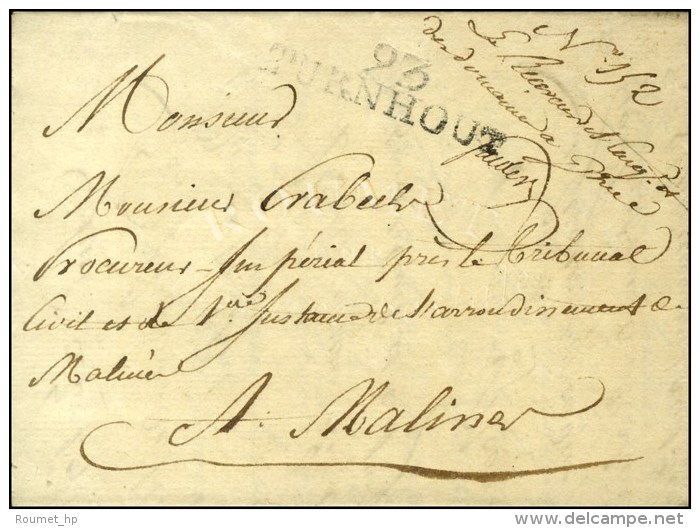 Nº 152
Le Receveur de l'Enregt. et
des domaines à
93
TURNHOUT
Monsieur
Monsieur Crabeels
Procureur Impérial près le Tribunal
Civil et de 1ere Instance de l'arrondissement de
Malines
A Malines
Roumet_hp
© delcampe.net